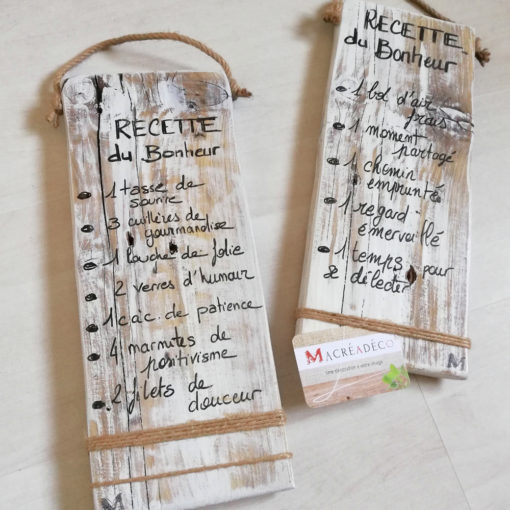 RECETTE
du Bonheur
1 tasse de
sourire
3 cuillères de
gourmandise
1 louche de folie
2 verres d'humour
1 c.a.c. de patience
4 marmites de
positivisme
2 filets de
douceur
M
RECETTE
du Bonheur
1 bol d'air
frais
1 moment
partagé
1 chemin
emprunté
1 regard
émerveillé
1 temps pour
se délecter
MACRÉADÉCO
Une décoration à votre image
M